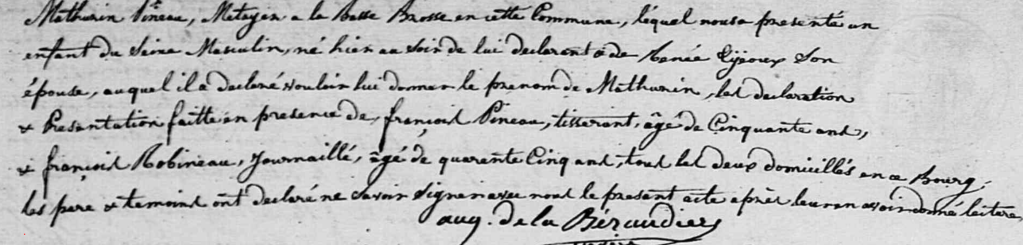 Mathurin Pineau, Metayer a la Basse Brosse en cette Commune, lequel nous a presenté un
enfant du Sexe Masculin, né hier au soir de lui declarant & de Renée Son
épouse, auquel il a declaré vouloir lui donner le prenom de Mathurin, les declaration
& Presentation faitte en presence de françois Pineau, tisserant, âgé de Cinquante ans,
& françois Robineau, Journaillé, âgé de quarente Cinq ans, tous les deux domicillés en ce Bourg.
les pere & temoins ont declaré ne savoir Signer avec nous le present acte après leur en avoir donné lecture
aug. de la Béraudier